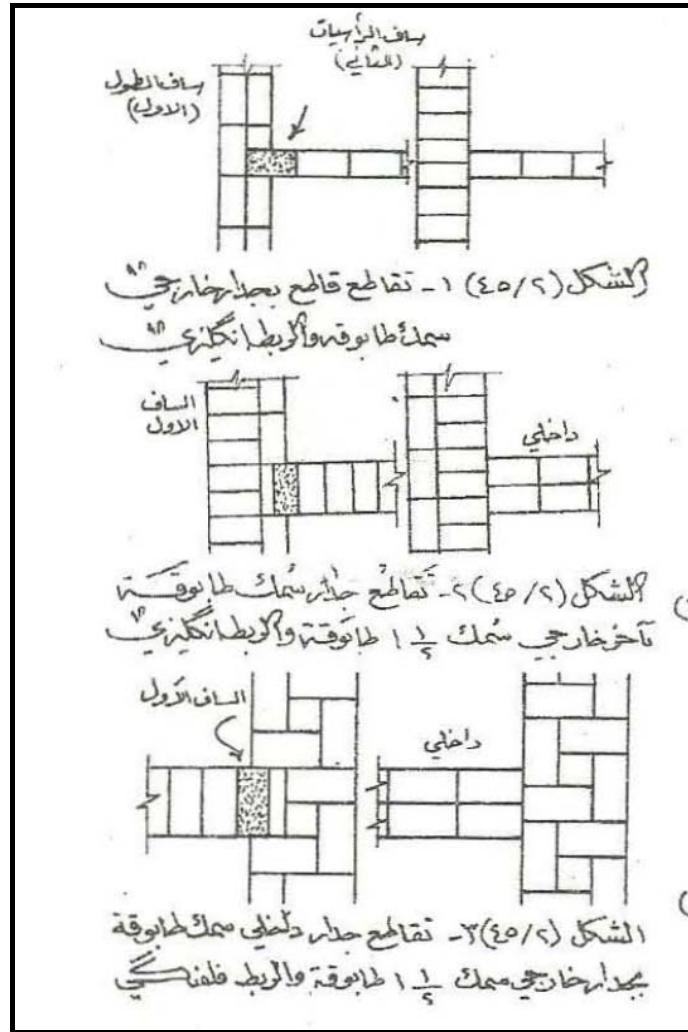 ساف الرأسيات
(الثاني)
ساف الطول
(الاول)
الشكل (٢/٤٥) ١- تقاطع قاطع بجدار خارجي
سمك طابوقة والربط انگليزي
الساف
الاول
داخلي
الشكل (٢/٤٥) ٢- تقاطع جدار سُمك طابوقة
بآخر خارجي سُمك ١ ١/٢ طابوقة والربط انگليزي
الساف الأول
داخلي
الشكل (٢/٤٥) ٣- تقاطع جدار داخلي سمك طابوقة
بجدار خارجي سمك ١ ١/٢ طابوقة والربط فلمنكي